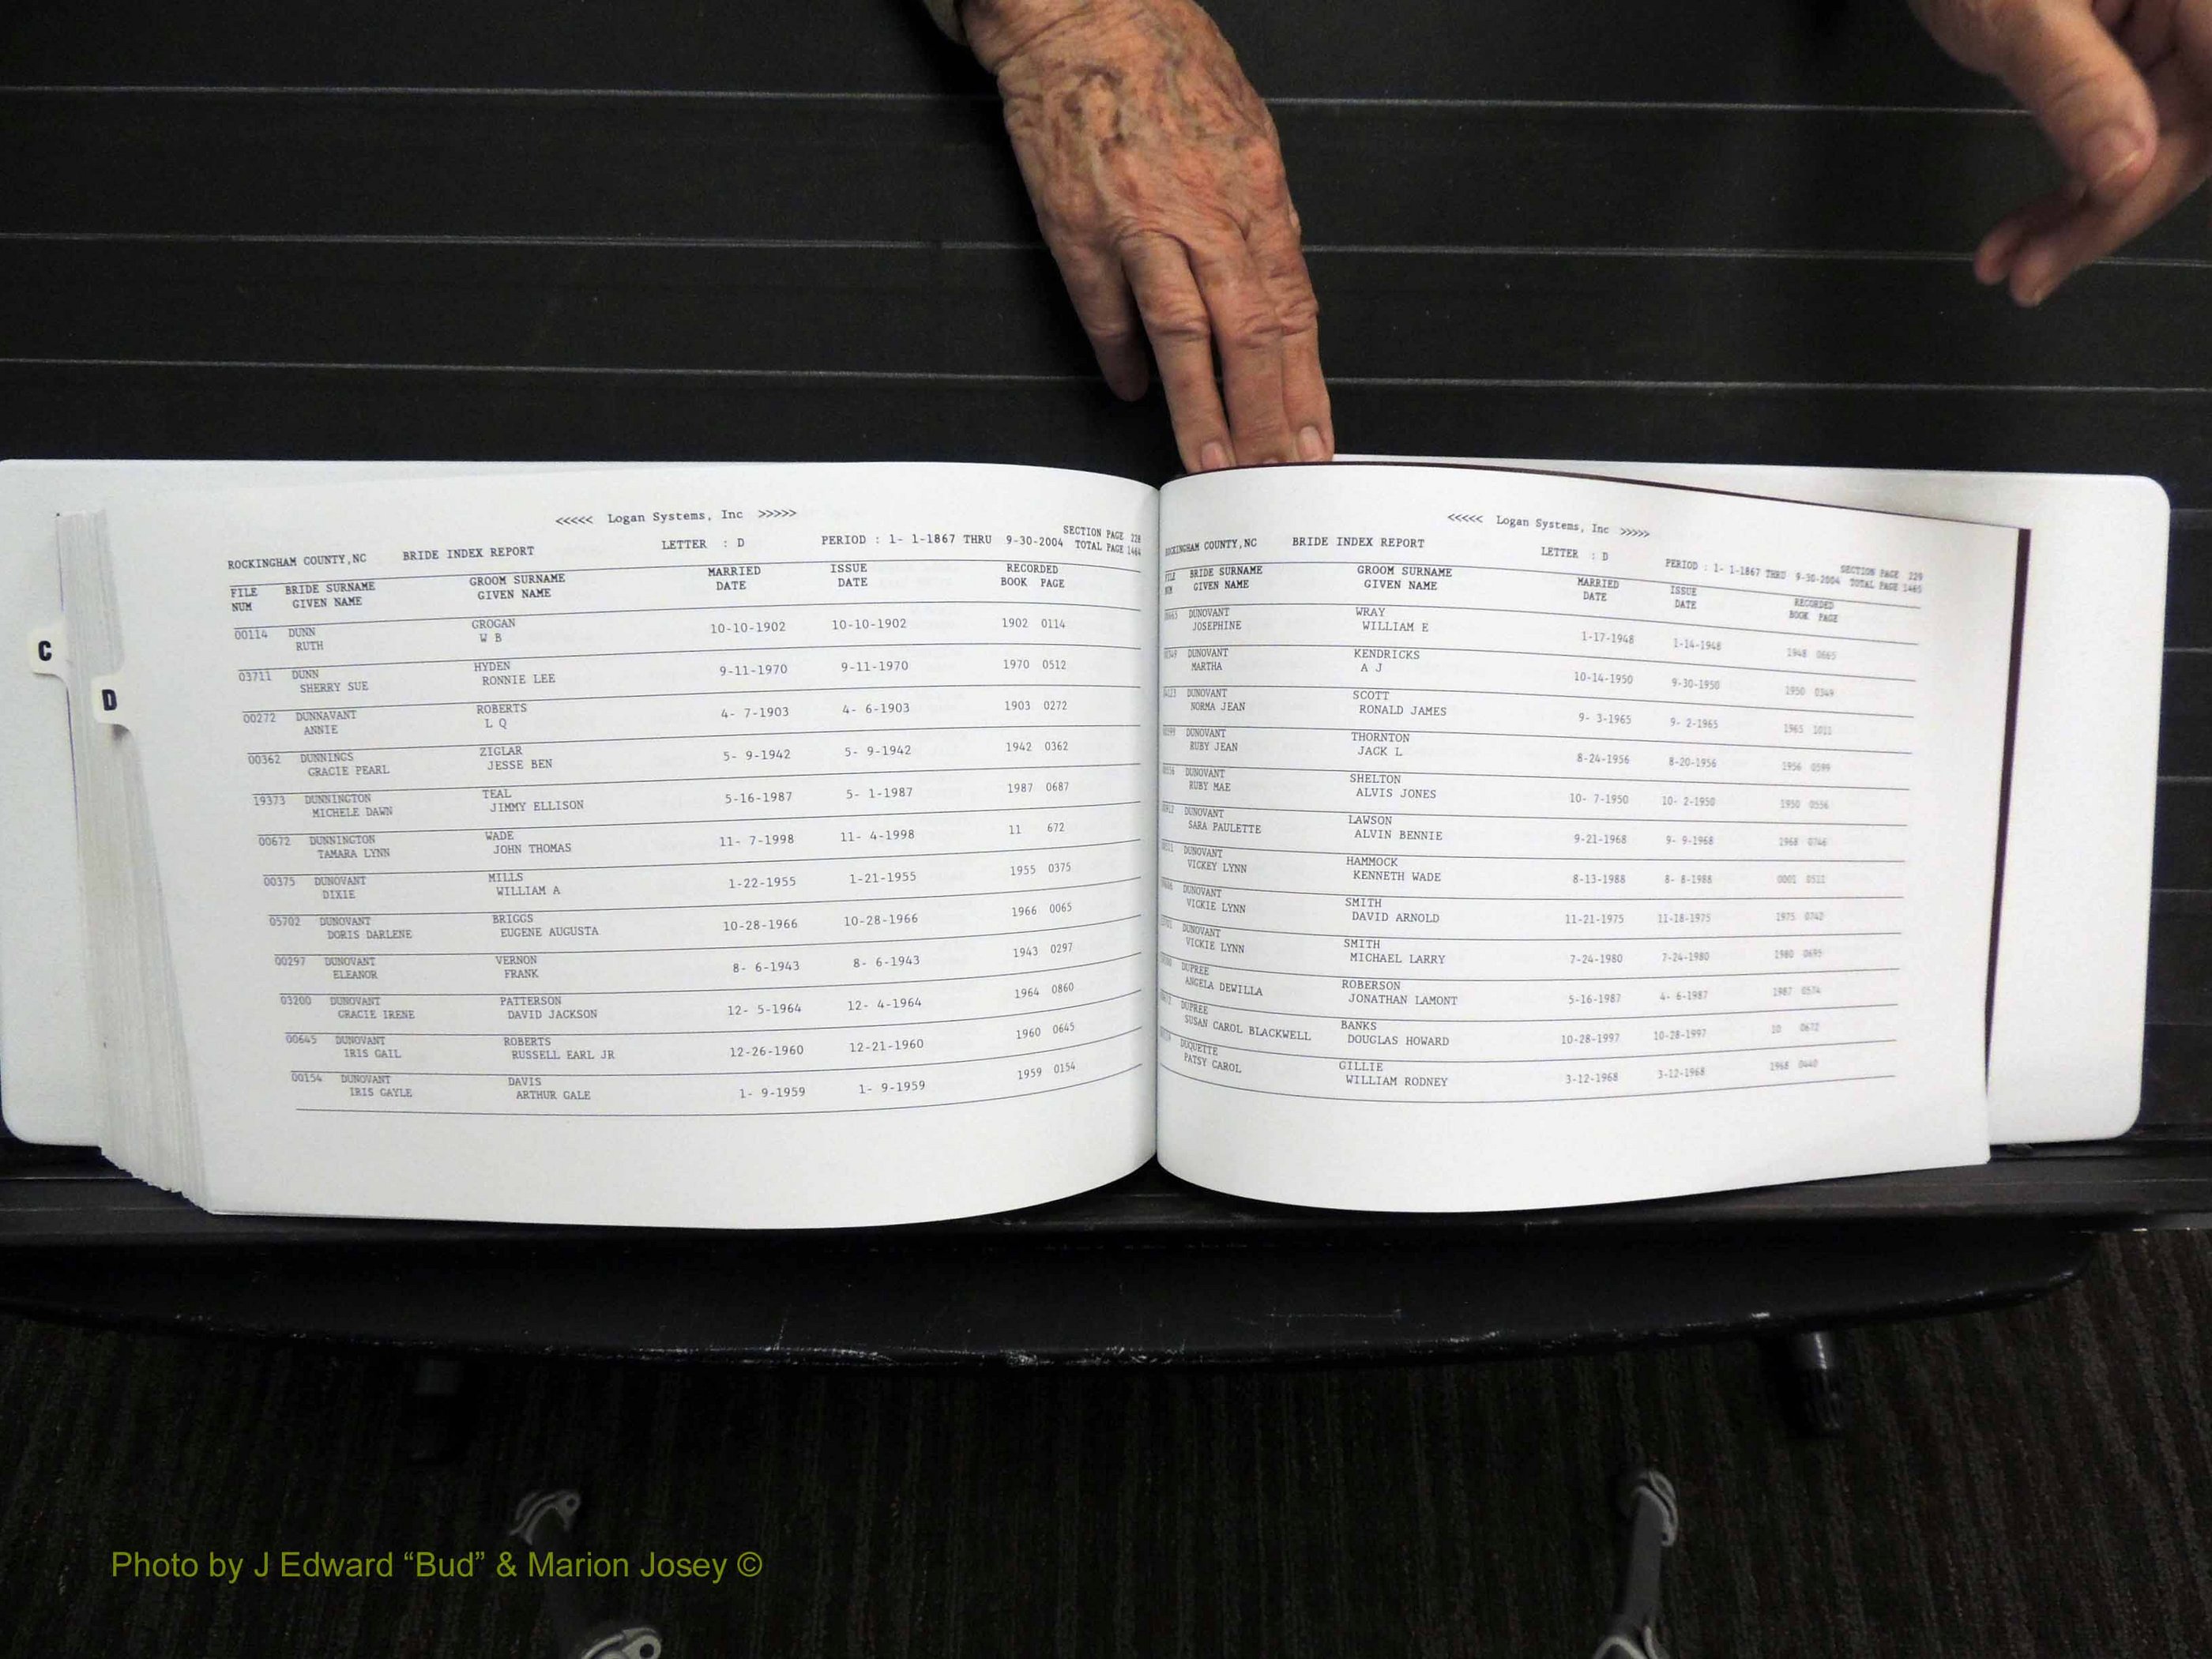 <<<<< Logan Systems, Inc >>>>>
SECTION PAGE 228
ROCKINGHAM COUNTY,NC BRIDE INDEX REPORT LETTER : D PERIOD : 1- 1-1867 THRU 9-30-2004 TOTAL PAGE 1464
FILE BRIDE SURNAME GROOM SURNAME MARRIED ISSUE RECORDED
NUM GIVEN NAME GIVEN NAME DATE DATE BOOK PAGE
00114 DUNN GROGAN 10-10-1902 10-10-1902 1902 0114
RUTH W B
03711 DUNN HYDEN 9-11-1970 9-11-1970 1970 0512
SHERRY SUE RONNIE LEE
00272 DUNNAVANT ROBERTS 4- 7-1903 4- 6-1903 1903 0272
ANNIE L Q
00362 DUNNINGS ZIGLAR 5- 9-1942 5- 9-1942 1942 0362
GRACIE PEARL JESSE BEN
19373 DUNNINGTON TEAL 5-16-1987 5- 1-1987 1987 0687
MICHELE DAWN JIMMY ELLISON
00672 DUNNINGTON WADE 11- 7-1998 11- 4-1998 11 672
TAMARA LYNN JOHN THOMAS
00375 DUNOVANT MILLS 1-22-1955 1-21-1955 1955 0375
DIXIE WILLIAM A
05702 DUNOVANT BRIGGS 10-28-1966 10-28-1966 1966 0065
DORIS DARLENE EUGENE AUGUSTA
00297 DUNOVANT VERNON 8- 6-1943 8- 6-1943 1943 0297
ELEANOR FRANK
03200 DUNOVANT PATTERSON 12- 5-1964 12- 4-1964 1964 0860
GRACIE IRENE DAVID JACKSON
00645 DUNOVANT ROBERTS 12-26-1960 12-21-1960 1960 0645
IRIS GAIL RUSSELL EARL JR
00154 DUNOVANT DAVIS 1- 9-1959 1- 9-1959 1959 0154
IRIS GAYLE ARTHUR GALE
C
D
<<<<< Logan Systems, Inc >>>>>
SECTION PAGE 229
ROCKINGHAM COUNTY,NC BRIDE INDEX REPORT LETTER : D PERIOD : 1- 1-1867 THRU 9-30-2004 TOTAL PAGE 1465
FILE BRIDE SURNAME GROOM SURNAME MARRIED ISSUE RECORDED
NUM GIVEN NAME GIVEN NAME DATE DATE BOOK PAGE
DUNOVANT WRAY 1-17-1948 1-14-1948 1948 0665
JOSEPHINE WILLIAM E
DUNOVANT KENDRICKS 10-14-1950 9-30-1950 1950 0349
MARTHA A J
DUNOVANT SCOTT 9- 3-1965 9- 2-1965 1965 1011
NORMA JEAN RONALD JAMES
DUNOVANT THORNTON 8-24-1956 8-20-1956 1956 0599
RUBY JEAN JACK L
DUNOVANT SHELTON 10- 7-1950 10- 2-1950 1950 0556
RUBY MAE ALVIS JONES
DUNOVANT LAWSON 9-21-1968 9- 9-1968 1968 0746
SARA PAULETTE ALVIN BENNIE
DUNOVANT HAMMOCK 8-13-1988 8- 8-1988 0001 0511
VICKEY LYNN KENNETH WADE
DUNOVANT SMITH 11-21-1975 11-18-1975 1975 0742
VICKIE LYNN DAVID ARNOLD
DUNOVANT SMITH 7-24-1980 7-24-1980 1980 0695
VICKIE LYNN MICHAEL LARRY
DUPREE ROBERSON 5-16-1987 4- 6-1987 1987 0574
ANGELA DEWILLA JONATHAN LAMONT
DUPREE BANKS 10-28-1997 10-28-1997 10 0672
SUSAN CAROL BLACKWELL DOUGLAS HOWARD
DUQUETTE GILLIE 3-12-1968 3-12-1968 1968 0440
PATSY CAROL WILLIAM RODNEY
Photo by J Edward “Bud” & Marion Josey ©